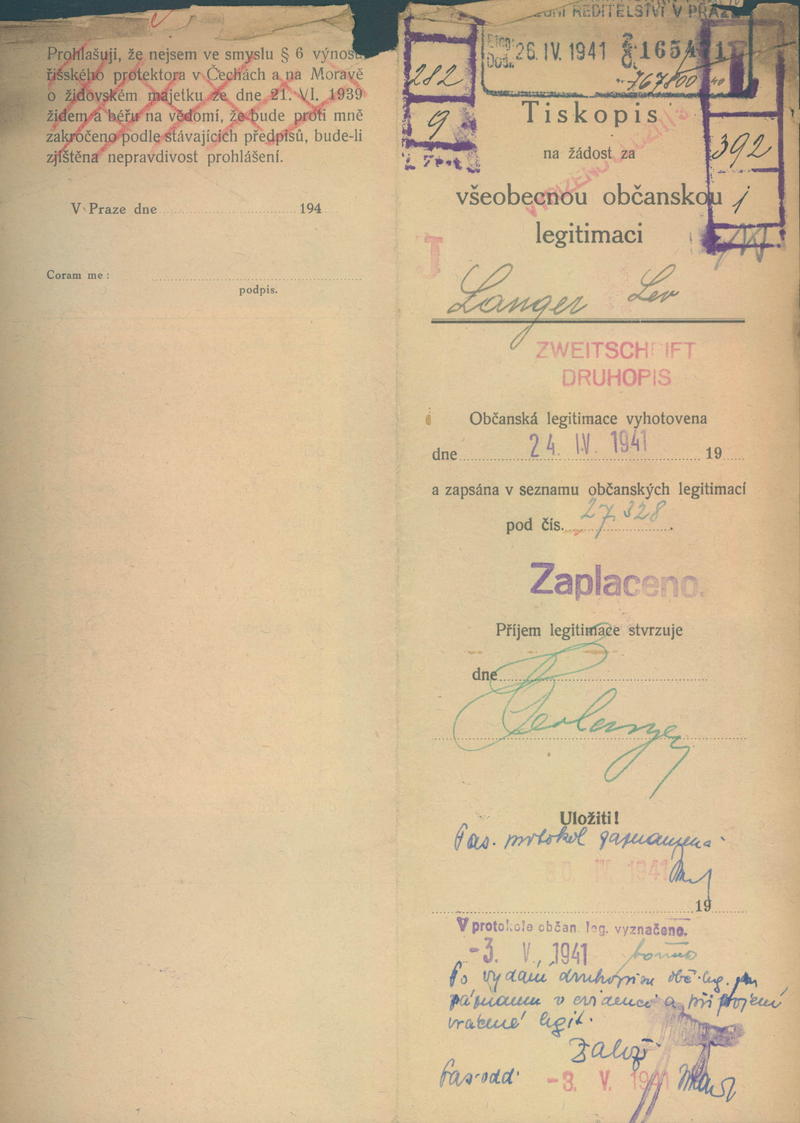 Prohlašuji, že nejsem ve smyslu § 6 výnosu
říšského protektora v Čechách a na Moravě
o židovském majetku ze dne 21. VI. 1939
židem a béřu na vědomí, že bude proti mně
zakročeno podle stávajících předpisů, bude-li
zjištěna nepravdivost prohlášení.
V Praze dne 194
Coram me :
podpis.
ŘEDITELSTVÍ V PRAZE
26. IV. 1941
767800
282
9
392
1
Tiskopis
na žádost za
všeobecnou občanskou
legitimaci
J
Langer Lev
ZWEITSCHRIFT
DRUHOPIS
Občanská legitimace vyhotovena
dne 24. IV. 1941 19
a zapsána v seznamu občanských legitimací
pod čís. 27.328.
Zaplaceno.
Příjem legitimace stvrzuje
dne
Uložiti!
Pas. protokol
30. IV. 1941
19
V protokole občan. leg. vyznačeno.
-3. V. 1941
Po vydání druhopisu obč. leg.
v evidenci a připojení
vrácené legit.
Založ
Pas. odd. -3. V. 1941